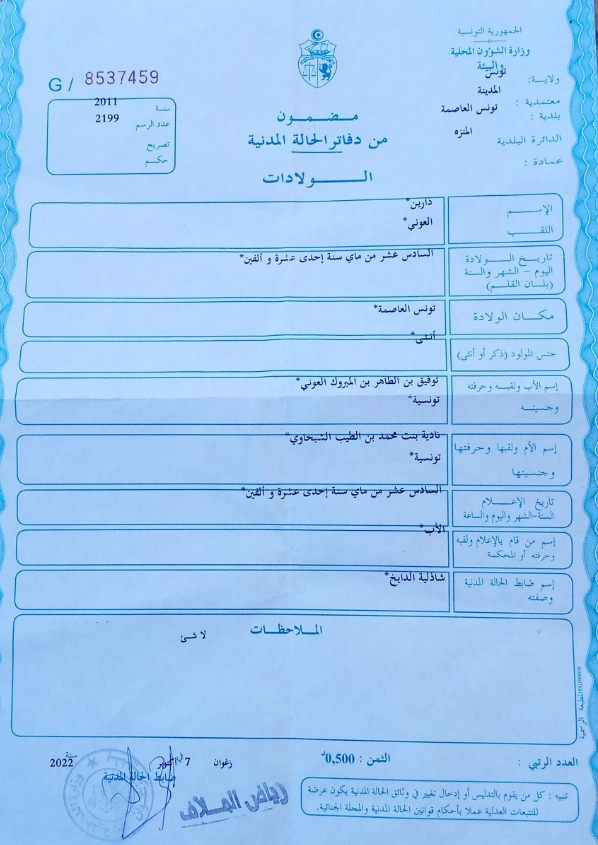 الجمهورية التونسية
وزارة الشؤون المحلية
والبيئة
ولاية: تونس
معتمدية : المدينة
بلدية : تونس العاصمة
الدائرة البلدية المنزه
عمادة :
G / 8537459
سنة 2011
عدد الرسم 2199
تصريح
حكم
مضمون
من دفاتر الحالة المدنية
الولادات
الإسم دارين*
اللقب العوني*
تاريخ الولادة
اليوم - الشهر والسنة
(بلسان القلم)
السادس عشر من ماي سنة إحدى عشرة و ألفين*
مكان الولادة تونس العاصمة*
جنس المولود (ذكر أو أنثى) أنثى*
إسم الأب ولقبه وحرفته توفيق بن الطاهر بن المبروك العوني*
وجنسيته تونسية*
إسم الأم ولقبها وحرفتها نادية بنت محمد بن الطيب الشيحاوي*
وجنسيتها تونسية*
تاريخ الإعلام
السنة-الشهر واليوم والساعة
السادس عشر من ماي سنة إحدى عشرة و ألفين*
إسم من قام بالإعلام ولقبه
وحرفته أو المحكمة
الأب*
إسم ضابط الحالة المدنية
وصفته
شاذلية الدايخ*
الملاحظات
لا شئ
العدد الرتبي : الثمن : 0,500د
زغوان 7 أكتوبر سنة 2022
ضابط الحالة المدنية
رياض العلاف
تنبيه : كل من يقوم بالتدليس أو إدخال تغيير في وثائق الحالة المدنية يكون عرضة
للتتبعات العدلية عملا بأحكام قوانين الحالة المدنية والمجلة الجنائية.